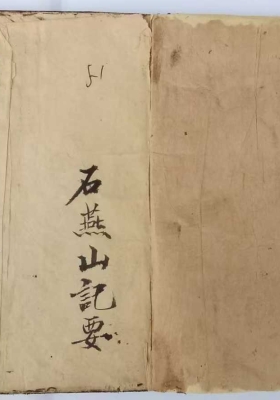 石燕山記要